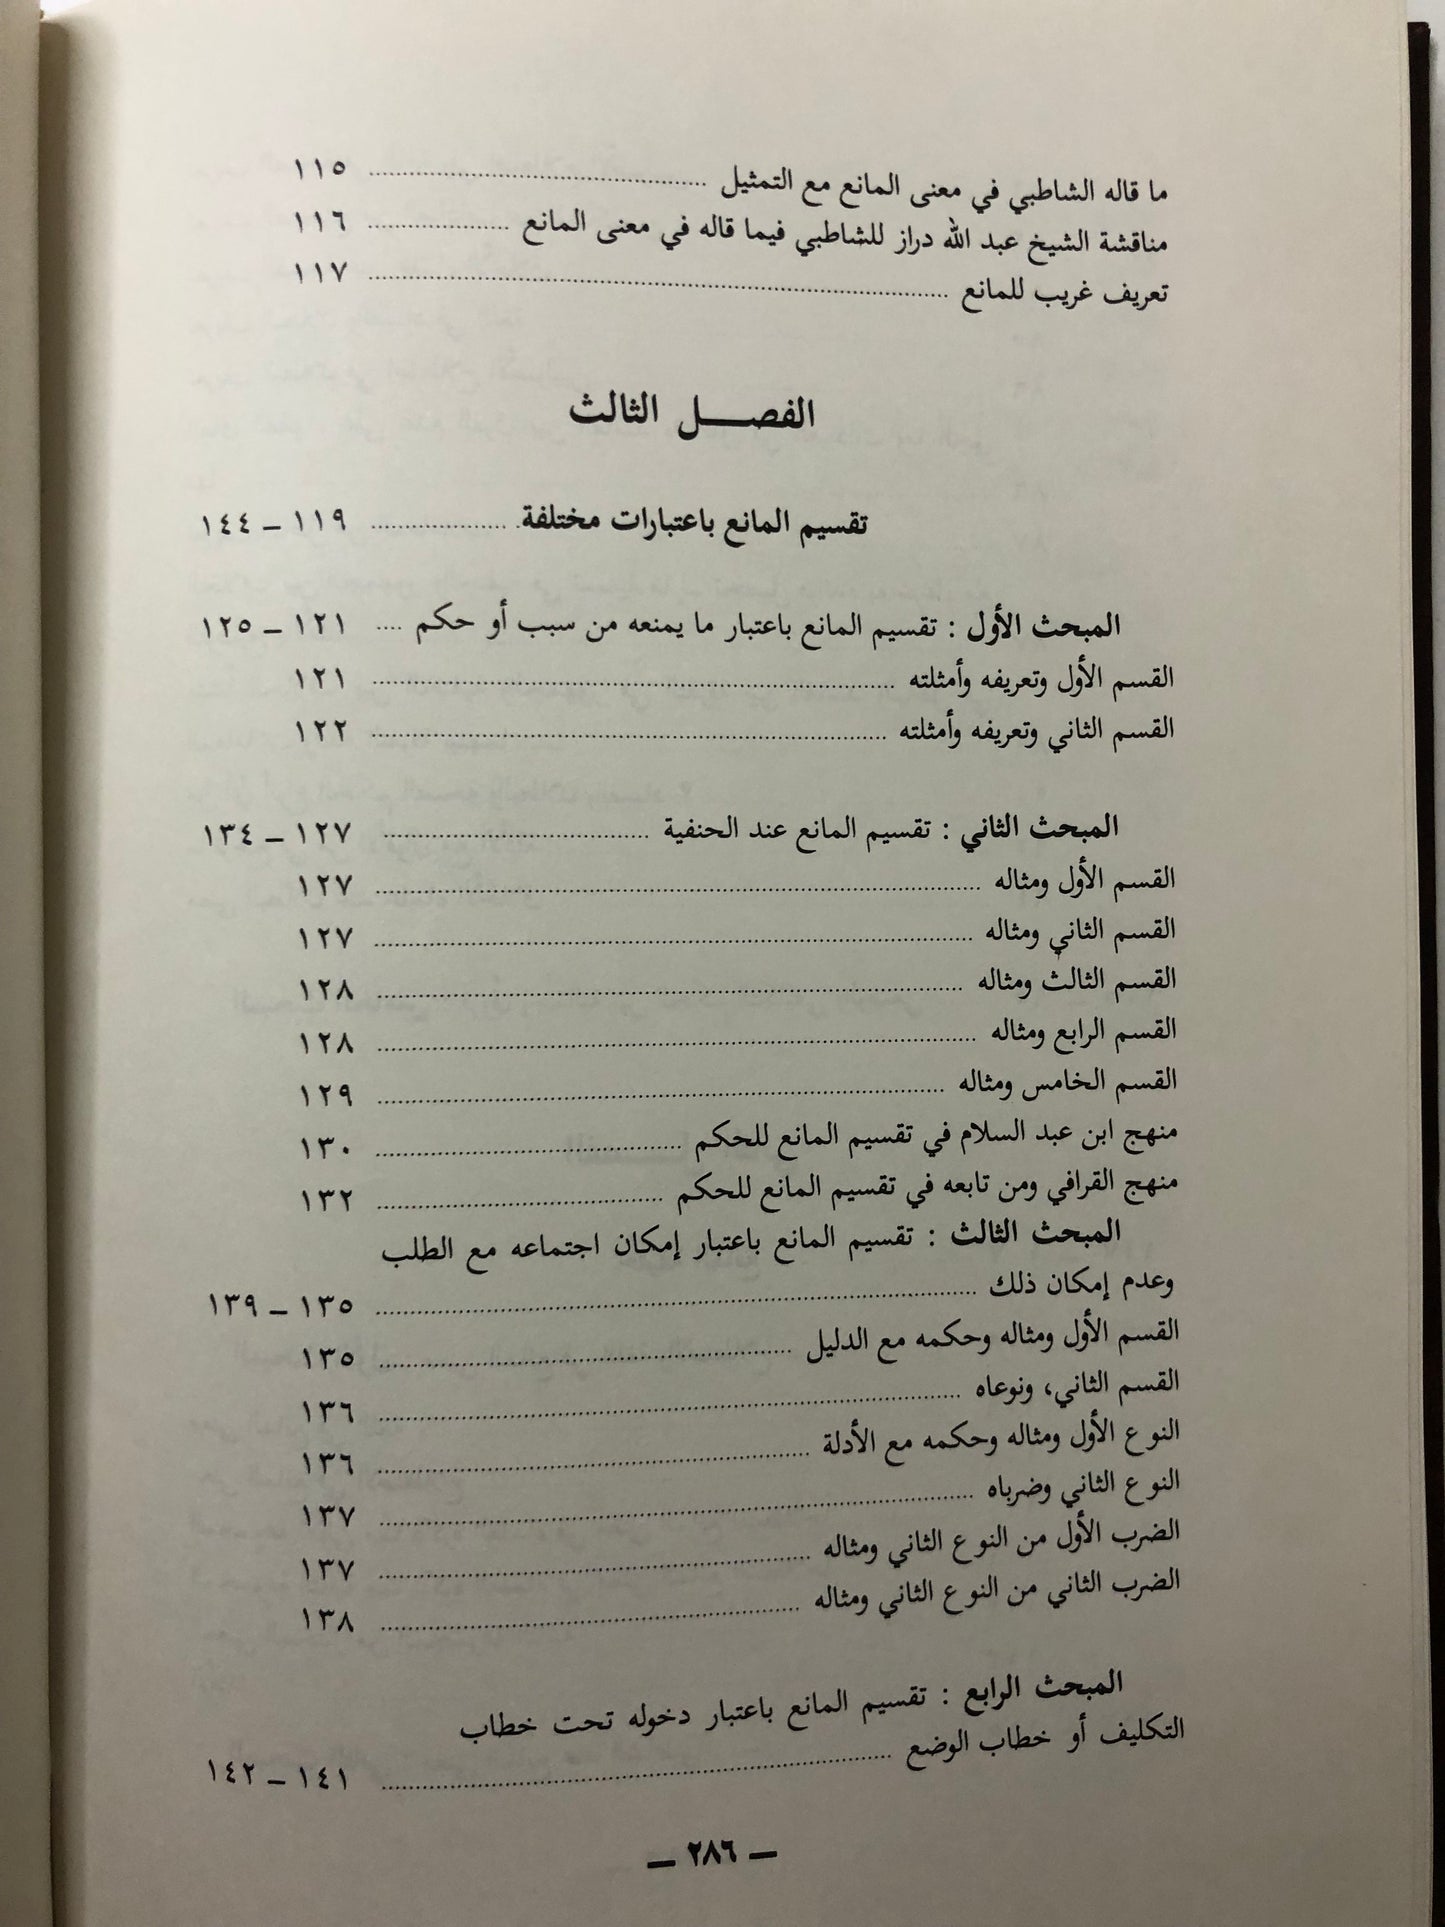 ما قاله الشاطبي في معنى المانع مع التمثيل ........................ ١١٥
مناقشة الشيخ عبد الله دراز للشاطبي فيما قاله في معنى المانع ............ ١١٦
تعريف غريب للمانع ........................ ١١٧
الفصـــل الثالث
تقسيم المانع باعتبارات مختلفة .................... ١١٩ ــ ١٤٤
المبحث الأول : تقسيم المانع باعتبار ما يمنعه من سبب أو حكم .... ١٢١ ــ ١٢٥
القسم الأول وتعريفه وأمثلته ........................ ١٢١
القسم الثاني وتعريفه وأمثلته ........................ ١٢٢
المبحث الثاني : تقسيم المانع عند الحنفية ........................ ١٢٧ ــ ١٣٤
القسم الأول ومثاله ........................ ١٢٧
القسم الثاني ومثاله ........................ ١٢٧
القسم الثالث ومثاله ........................ ١٢٨
القسم الرابع ومثاله ........................ ١٢٨
القسم الخامس ومثاله ........................ ١٢٩
منهج ابن عبد السلام في تقسيم المانع للحكم ........................ ١٣٠
منهج القرافي ومن تابعه في تقسيم المانع للحكم ........................ ١٣٢
المبحث الثالث : تقسيم المانع باعتبار إمكان اجتماعه مع الطلب
وعدم إمكان ذلك ........................ ١٣٥ ــ ١٣٩
القسم الأول ومثاله وحكمه مع الدليل ........................ ١٣٥
القسم الثاني، ونوعاه ........................ ١٣٦
النوع الأول ومثاله وحكمه مع الأدلة ........................ ١٣٦
النوع الثاني وضرباه ........................ ١٣٧
الضرب الأول من النوع الثاني ومثاله ........................ ١٣٧
الضرب الثاني من النوع الثاني ومثاله ........................ ١٣٨
المبحث الرابع : تقسيم المانع باعتبار دخوله تحت خطاب
التكليف أو خطاب الوضع ........................ ١٤١ ــ ١٤٢
ــ ٢٨٦ ــ